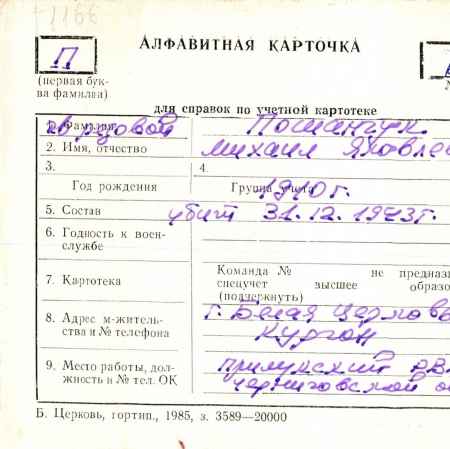 1166
П
АЛФАВИТНАЯ КАРТОЧКА
(первая бук-
ва фамилии)
для справок по учетной картотеке
1. Фамилия рядовой Поштанчук
2. Имя, отчество Михаил Яковле
3. 4.
Год рождения Группа учета 1910 г.
5. Состав убит 31.12.1943г.
6. Годность к воен-
службе
7. Картотека Команда № не предназ
спецучет высшее образо
(подчеркнуть)
8. Адрес м-житель-
ства и № телефона г. Белая Церковь
Курган
9. Место работы, дол-
жность и № тел. ОК Прилукский РВ
Черниговской о
Б. Церковь, гортип., 1985, з. 3589—20000